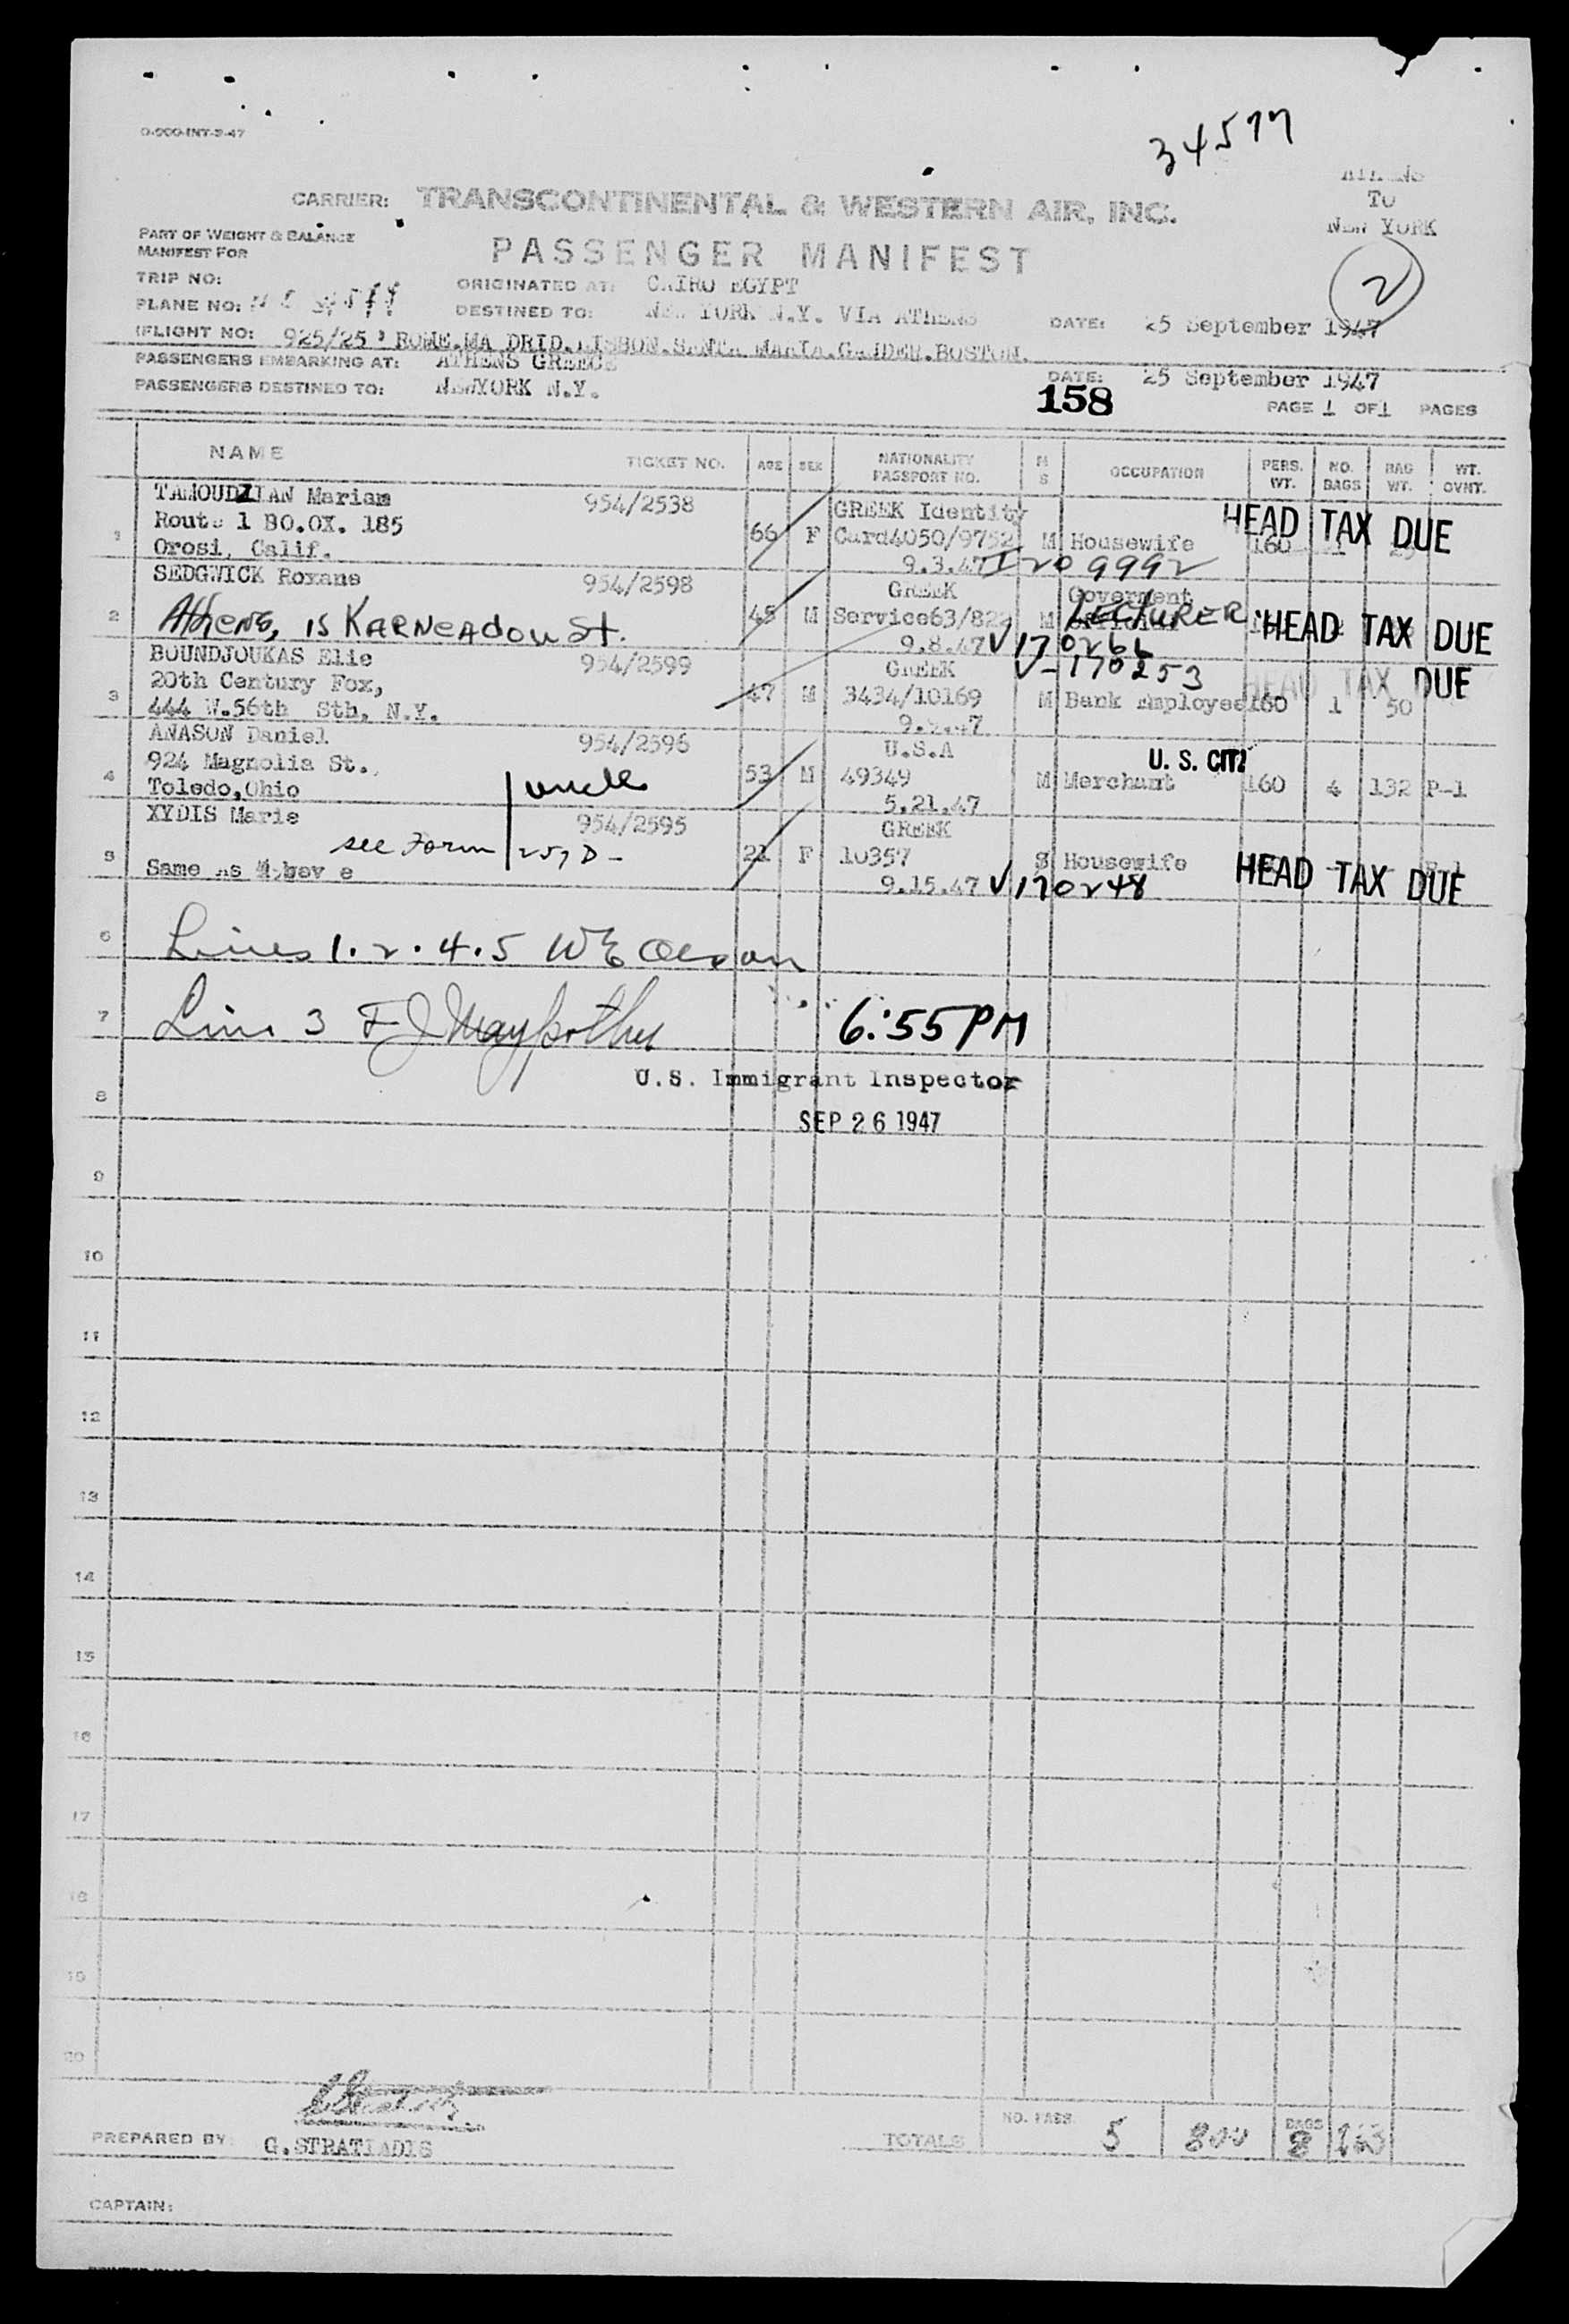 O-000-INT-3-47
34577
ATHENS
To
NEW YORK
2
CARRIER: TRANSCONTINENTAL & WESTERN AIR, INC.
PART OF WEIGHT & BALANCE
MANIFEST FOR
PASSENGER MANIFEST
TRIP NO: ORIGINATED AT: CAIRO EGYPT
PLANE NO: DESTINED TO: NEW YORK N.Y. VIA ATHENS DATE: 25 September 1947
(FLIGHT NO: 925/25 ROME.MA DRID.LISBON.SANTA MARIA.GANDER.BOSTON.
PASSENGERS EMBARKING AT: ATHENS GREECE DATE: 25 September 1947
PASSENGERS DESTINED TO: NEWYORK N.Y. 158 PAGE 1 OF 1 PAGES
NAME TICKET NO. AGE SEX NATIONALITY PASSPORT NO. M S OCCUPATION PERS. WT. NO. BAGS BAG WT. WT. OVNT.
TAMOUDZIAN Mariam 954/2538 GREEK Identity HEAD TAX DUE
Route 1 BO.OX. 185
1 Orosi, Calif. 66 F Card4050/9752 M Housewife 160 1
9.3.47 I209992
SEDGWICK Roxane 954/2598 GREEK Goverment
2 Athens, 15 KARNEADOU St. 45 M Service63/822 M LECTURER HEAD TAX DUE
9.8.47 V170266
BOUNDJOUKAS Elie 954/2599 GREEK V-170253 HEAD TAX DUE
20th Century Fox,
3 444 W.56th Sth, N.Y. 47 M 3434/10169 M Bank Employee 160 1 50
ANASON Daniel 954/2596 U.S.A U.S. CITZ
924 Magnolia St.
4 Toledo, Ohio uncle 53 M 49349 M Merchant 160 4 132 P-1
5.21.47
XYDIS Marie 954/2595 GREEK
see Form 257D-
5 Same As Abov e 21 F 10357 S Housewife HEAD TAX DUE
9.15.47 V170248
6 Lines 1.2.4.5 WE Olson
7 Line 3 6:55PM
U.S. Immigrant Inspector
8 SEP 26 1947
9
10
11
12
13
14
15
16
17
18
19
20
PREPARED BY G.STRATIADIS
TOTALS NO. PASS. 5 800 BAGS 8
CAPTAIN: